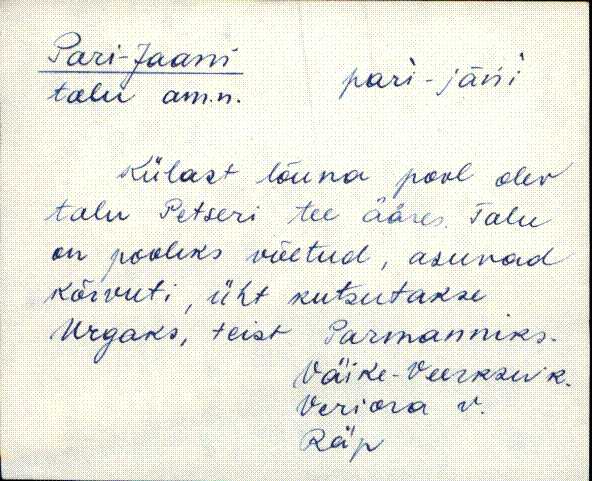 Pari-Jaani
talu am.n.
pari-jāńi
Külast lõuna pool olev
talu Petseri tee ääres. Talu
on pooleks võetud, asuvad
kõrvuti, üht kutsutakse
Urgaks, teist Parmanniks.
Väike-Veerksu k.
Veriora v.
Räp